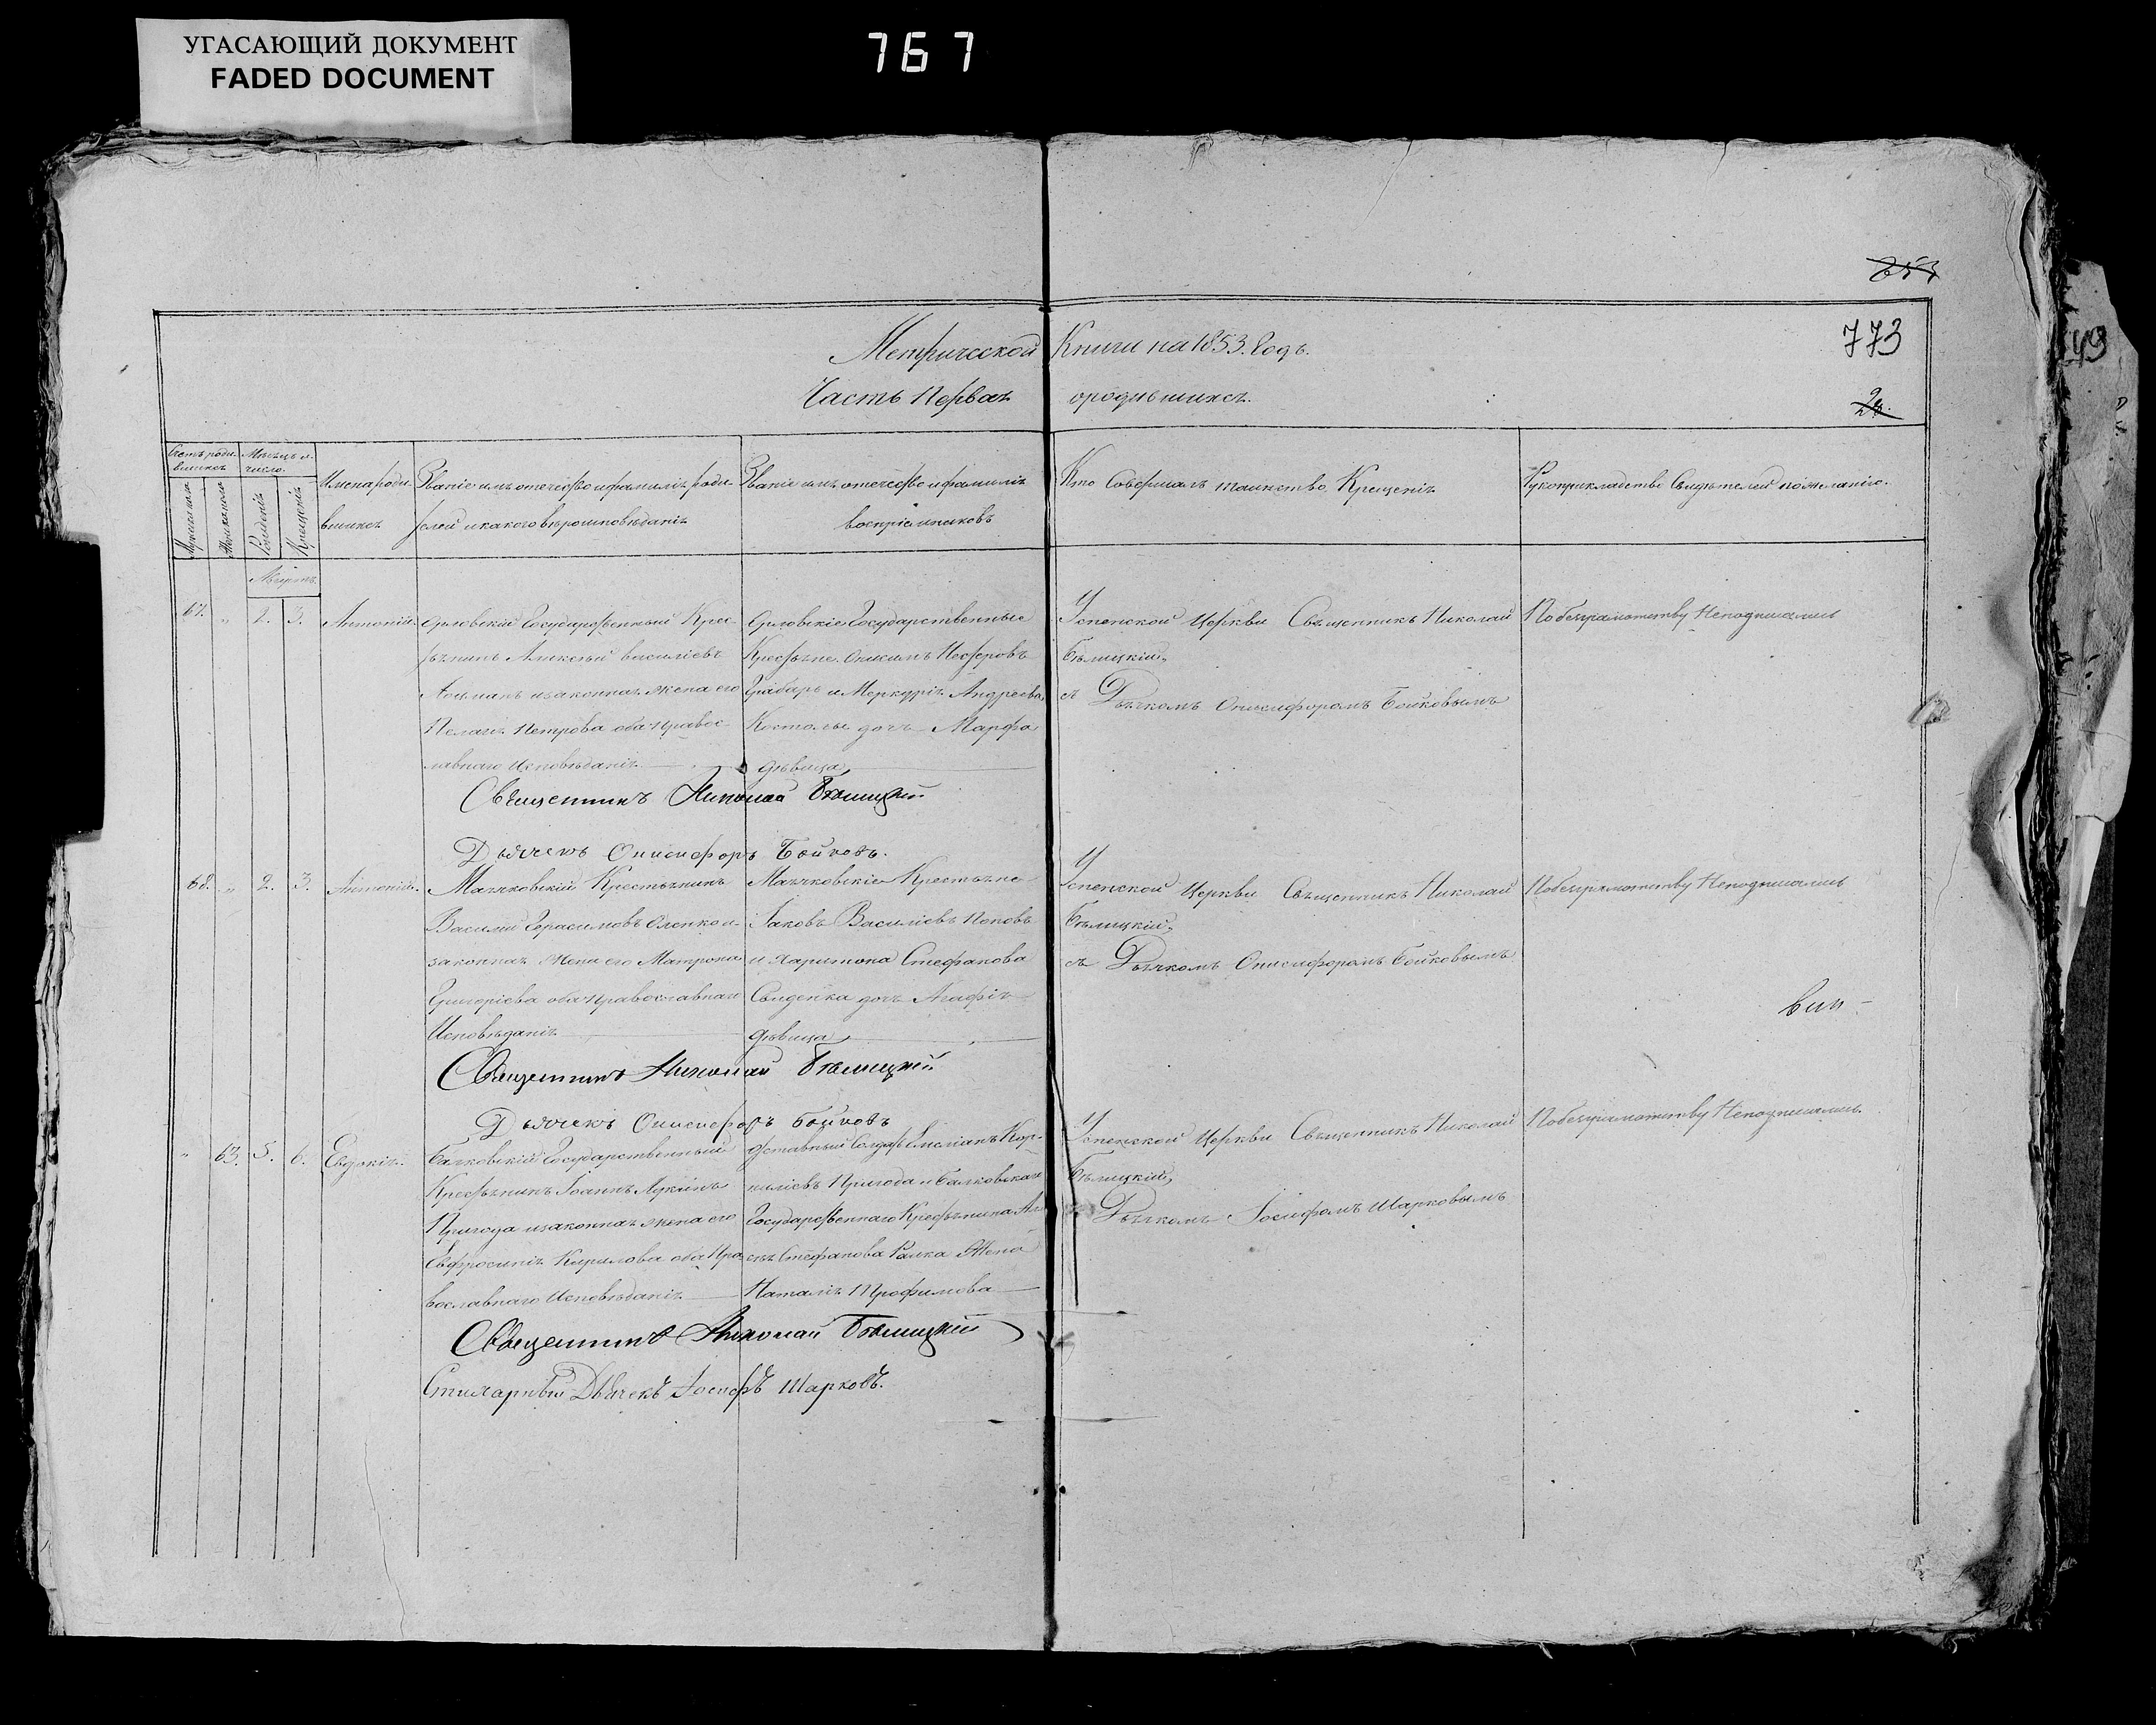 УГАСАЮЩИЙ ДОКУМЕНТ
FADED DOCUMENT
767
773
Метрической Книги на 1853. Годъ.
Часть Первая о родившихся.
Счетъ роди-
вшихся
Мѣсяцъ и
число.
Мужескаго
Женскаго
Рожденія
Крещенія
Имена роди-
вшихся
Званіе имя отечество и фамилія роди-
телей и какого вѣроисповѣданія
Званіе имя отечество и фамилія
воспріемниковъ
Кто Совершалъ таинство Крещенія
Рукоприкладство Свидѣтелей по желанію.
Августъ.
67. „ 2. 3. Антоній.
Орловскій Государственный Крес-
тьянинъ Алексѣй Василіевъ
и законная жена его
Пелагія Петрова оба правос-
лавнаго Исповѣданія
Орловскіе Государственные
Крестьяне Несторовъ
Грабарь и Меркурія Андреева
дочь Марфа
дѣвица
Успенской Церкви Священникъ Николай
Бѣлицкій
съ Дьячкомъ Онисифоромъ Бойковымъ
По безграмотству Неподписались
Священникъ Николай Бѣлицкій
Дьячекъ Онисифоръ Бойковъ.
68. „ 2. 3. Антоній.
Маячковскій Крестьянинъ
Василій Герасимовъ Оленко и
законная жена его Матрона
Григоріева оба православнаго
Исповѣданія
Маячковскіе Крестьяне
Іаковъ Василіевъ Поповъ
и Харитона Стефанова
дочь Агафія
дѣвица
Успенской Церкви Священникъ Николай
Бѣлицкій
съ Дьячкомъ Онисифоромъ Бойковымъ
По безграмотству Неподписались
Священникъ Николай Бѣлицкій
Дьячекъ Онисифоръ Бойковъ
„ 63. 5. 6. Евдокія.
Балковскій Государственный
Крестьянинъ Іоаннъ Лукинъ
Пригода и законная жена его
Евфросинія Кирилова оба Пра-
вославнаго Исповѣданія
Отставный Солдатъ Емеліанъ Кор-
ниліевъ Пригода и Балковскаго
Государственнаго Крестьянина Ал-
ексѣя Стефанова Жена
Наталія Трофимова
Успенской Церкви Священникъ Николай
Бѣлицкій
съ Дьячкомъ Іосифомъ Шарковымъ
По безграмотству Неподписались.
Священникъ Николай Бѣлицкій
Стихарный Дьячекъ Іосифъ Шарковъ.